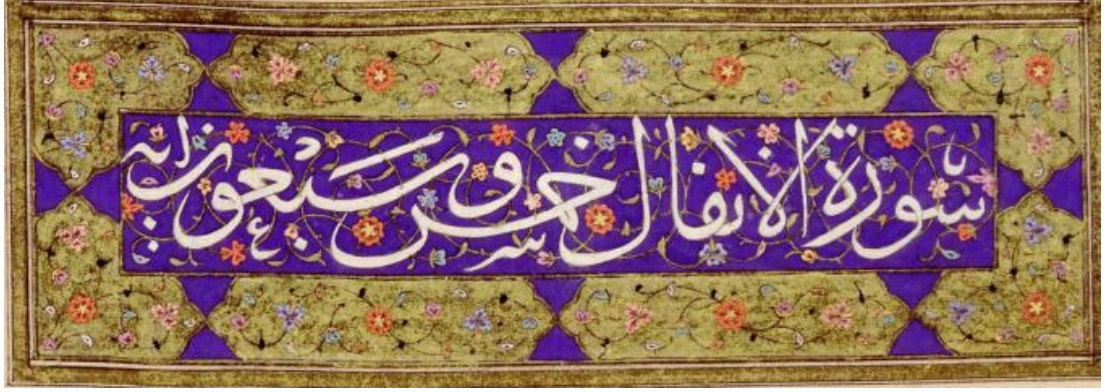 سورة الانفال خمس و سبعون اية